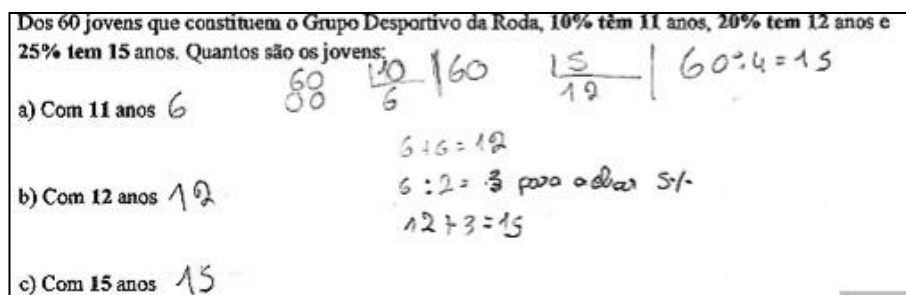 Dos 60 jovens que constituem o Grupo Desportivo da Roda, 10% têm 11 anos, 20% tem 12 anos e
25% tem 15 anos. Quantos são os jovens;
60
00
10
6
60
15
12
60:4=15
a) Com 11 anos 6
6+6=12
b) Com 12 anos 12
6:2=3 para achar 5%
12+3=15
c) Com 15 anos 15